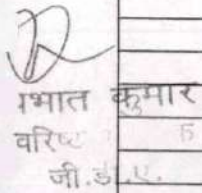 भात कुमार
वरिष्ठ
जी.डी.ए.